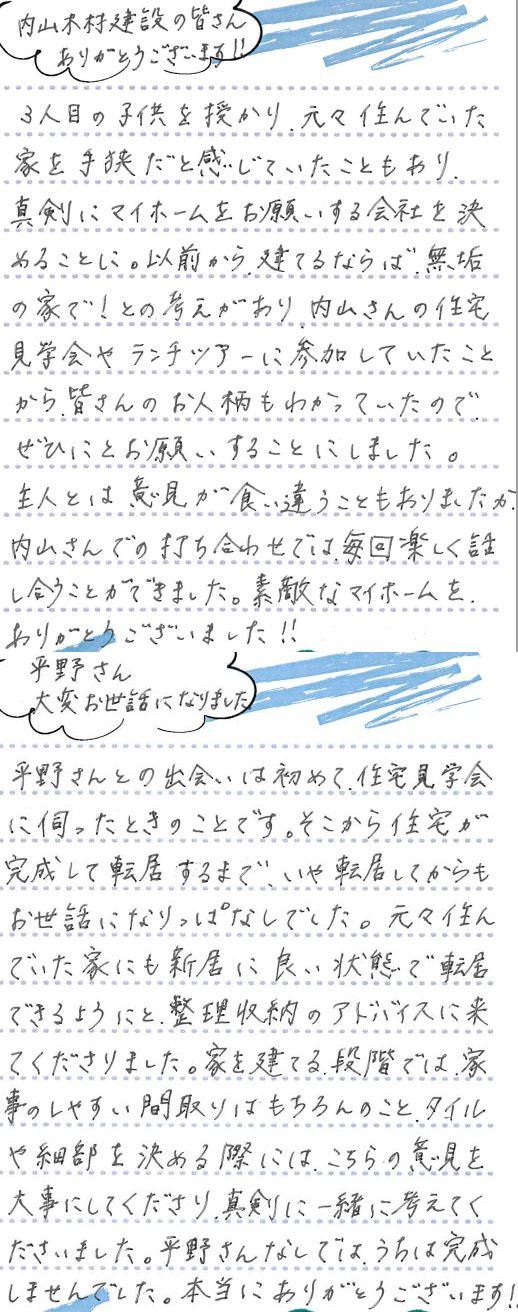 内山木材建設の皆さん
ありがとうございます!!
3人目の子供を授かり、元々住んでいた
家を手狭だと感じていたこともあり、
真剣にマイホームをお願いする会社を決
めることに。以前から、建てるならば、無垢
の家で!との考えがあり、内山さんの住宅
見学会やランチツアーに参加していたこと
から、皆さんのお人柄もわかっていたので、
ぜひにとお願いすることにしました。
主人とは意見が食い違うこともありましたが、
内山さんでの打ち合わせでは、毎回楽しく話
し合うことができました。素敵なマイホームを、
ありがとうございました!!
平野さん
大変お世話になりました
平野さんとの出会いは初めて、住宅見学会
に伺ったときのことです。そこから住宅が
完成して転居するまで、いや転居してからも
お世話になりっぱなしでした。元々住ん
でいた家にも新居に良い状態で転居
できるようにと、整理収納のアドバイスに来
てくださりました。家を建てる段階では、家
事のしやすい間取りはもちろんのこと、タイル
や細部を決める際には、こちらの意見を
大事にしてくださり、真剣に一緒に考えてく
ださいました。平野さんなしでは、うちは完成
しませんでした。本当にありがとうございます!